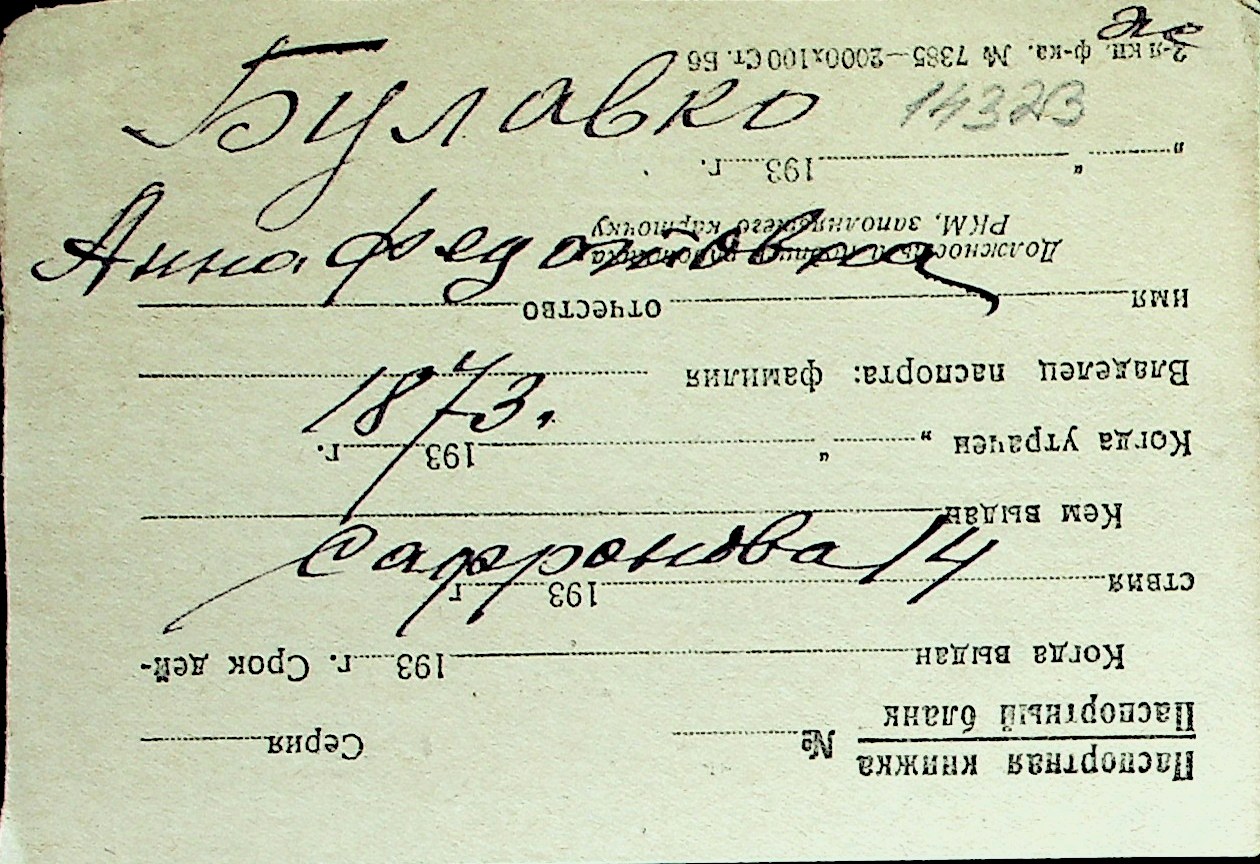 Булавко
14323
Анна Федотовна
1873.
Сафронова 14
Паспортная книжка
Паспортный бланк № Серия
Когда выдан 193 г. Срок дей-
ствия 193 г.
Кем выдан
Когда утрачен „ “ 193 г.
Владелец паспорта: фамилия
имя отчество
Должность и подпись работника
РКМ, заполнявшего карточку
„ “ 193 г.
2-я кн. ф-ка. № 7385—2000х100 Ст. Бб